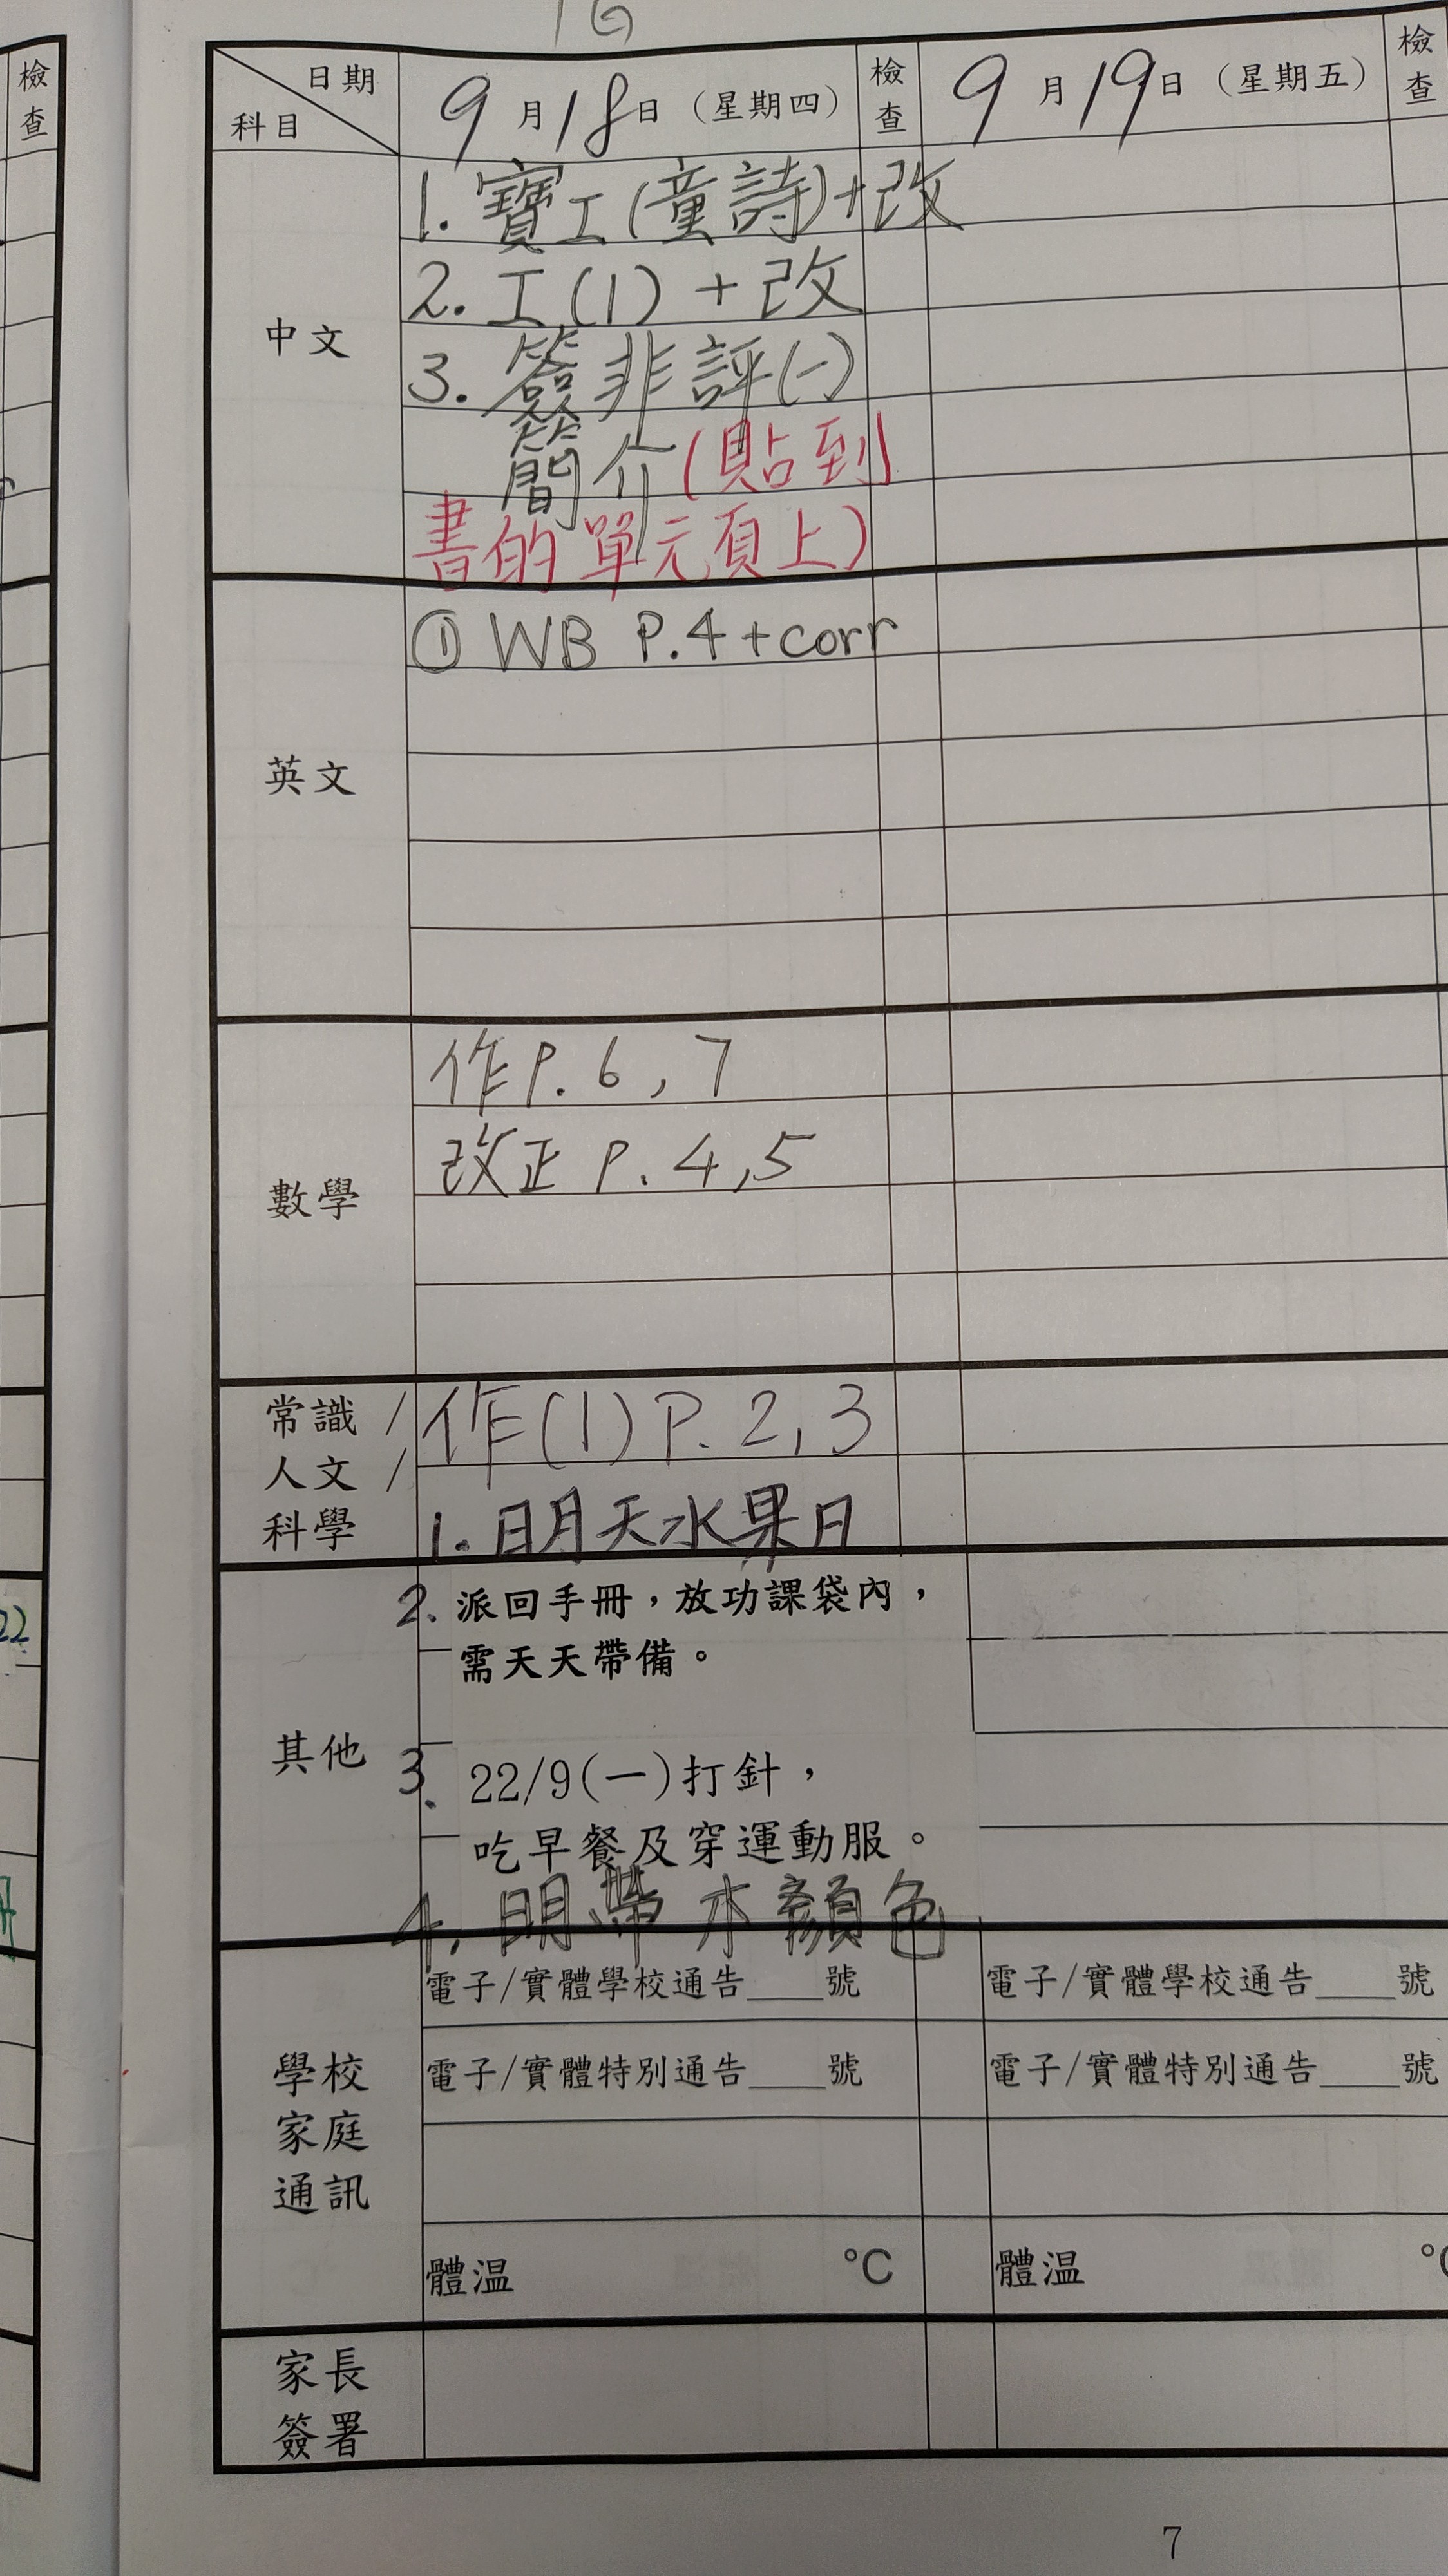 1G
日期
科目
9月18日（星期四）
檢查
9月19日（星期五）
檢查
檢查
中文
1. 寶工(童詩)+改
2. 工(1) + 改
3. 簽非評(一)
簡介(貼到
書的單元頁上)
英文
① WB P.4 + corr
數學
作P. 6, 7
改正 P. 4,5
常識/
人文/
科學
作(1) P. 2, 3
1. 明天水果日
其他
2. 派回手冊，放功課袋內，
需天天帶備。
3. 22/9(一)打針，
吃早餐及穿運動服。
4. 明帶 木顏色
22
學校
家庭
通訊
電子/實體學校通告____號
電子/實體學校通告____號
電子/實體特別通告____號
電子/實體特別通告____號
體温 °C
體温 °C
家長
簽署
7